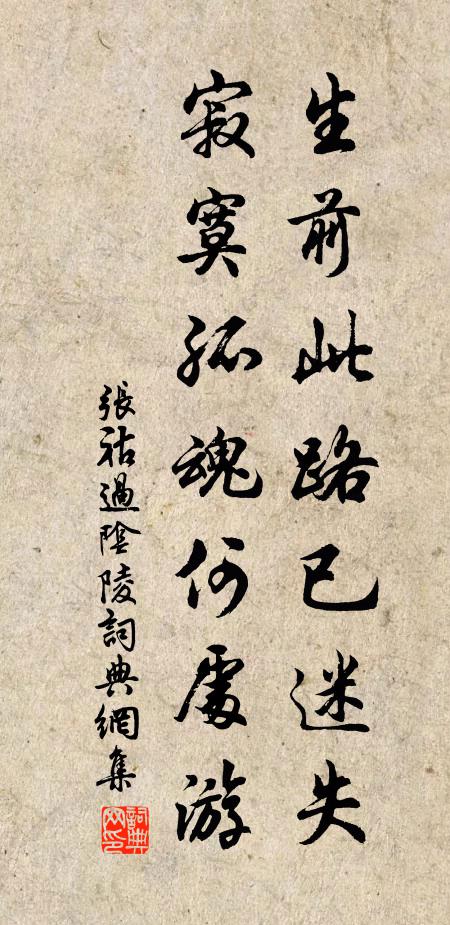 生前此路已迷失
寂寞孤魂何處游
張祜過陰陵詞典網集
詞典網印